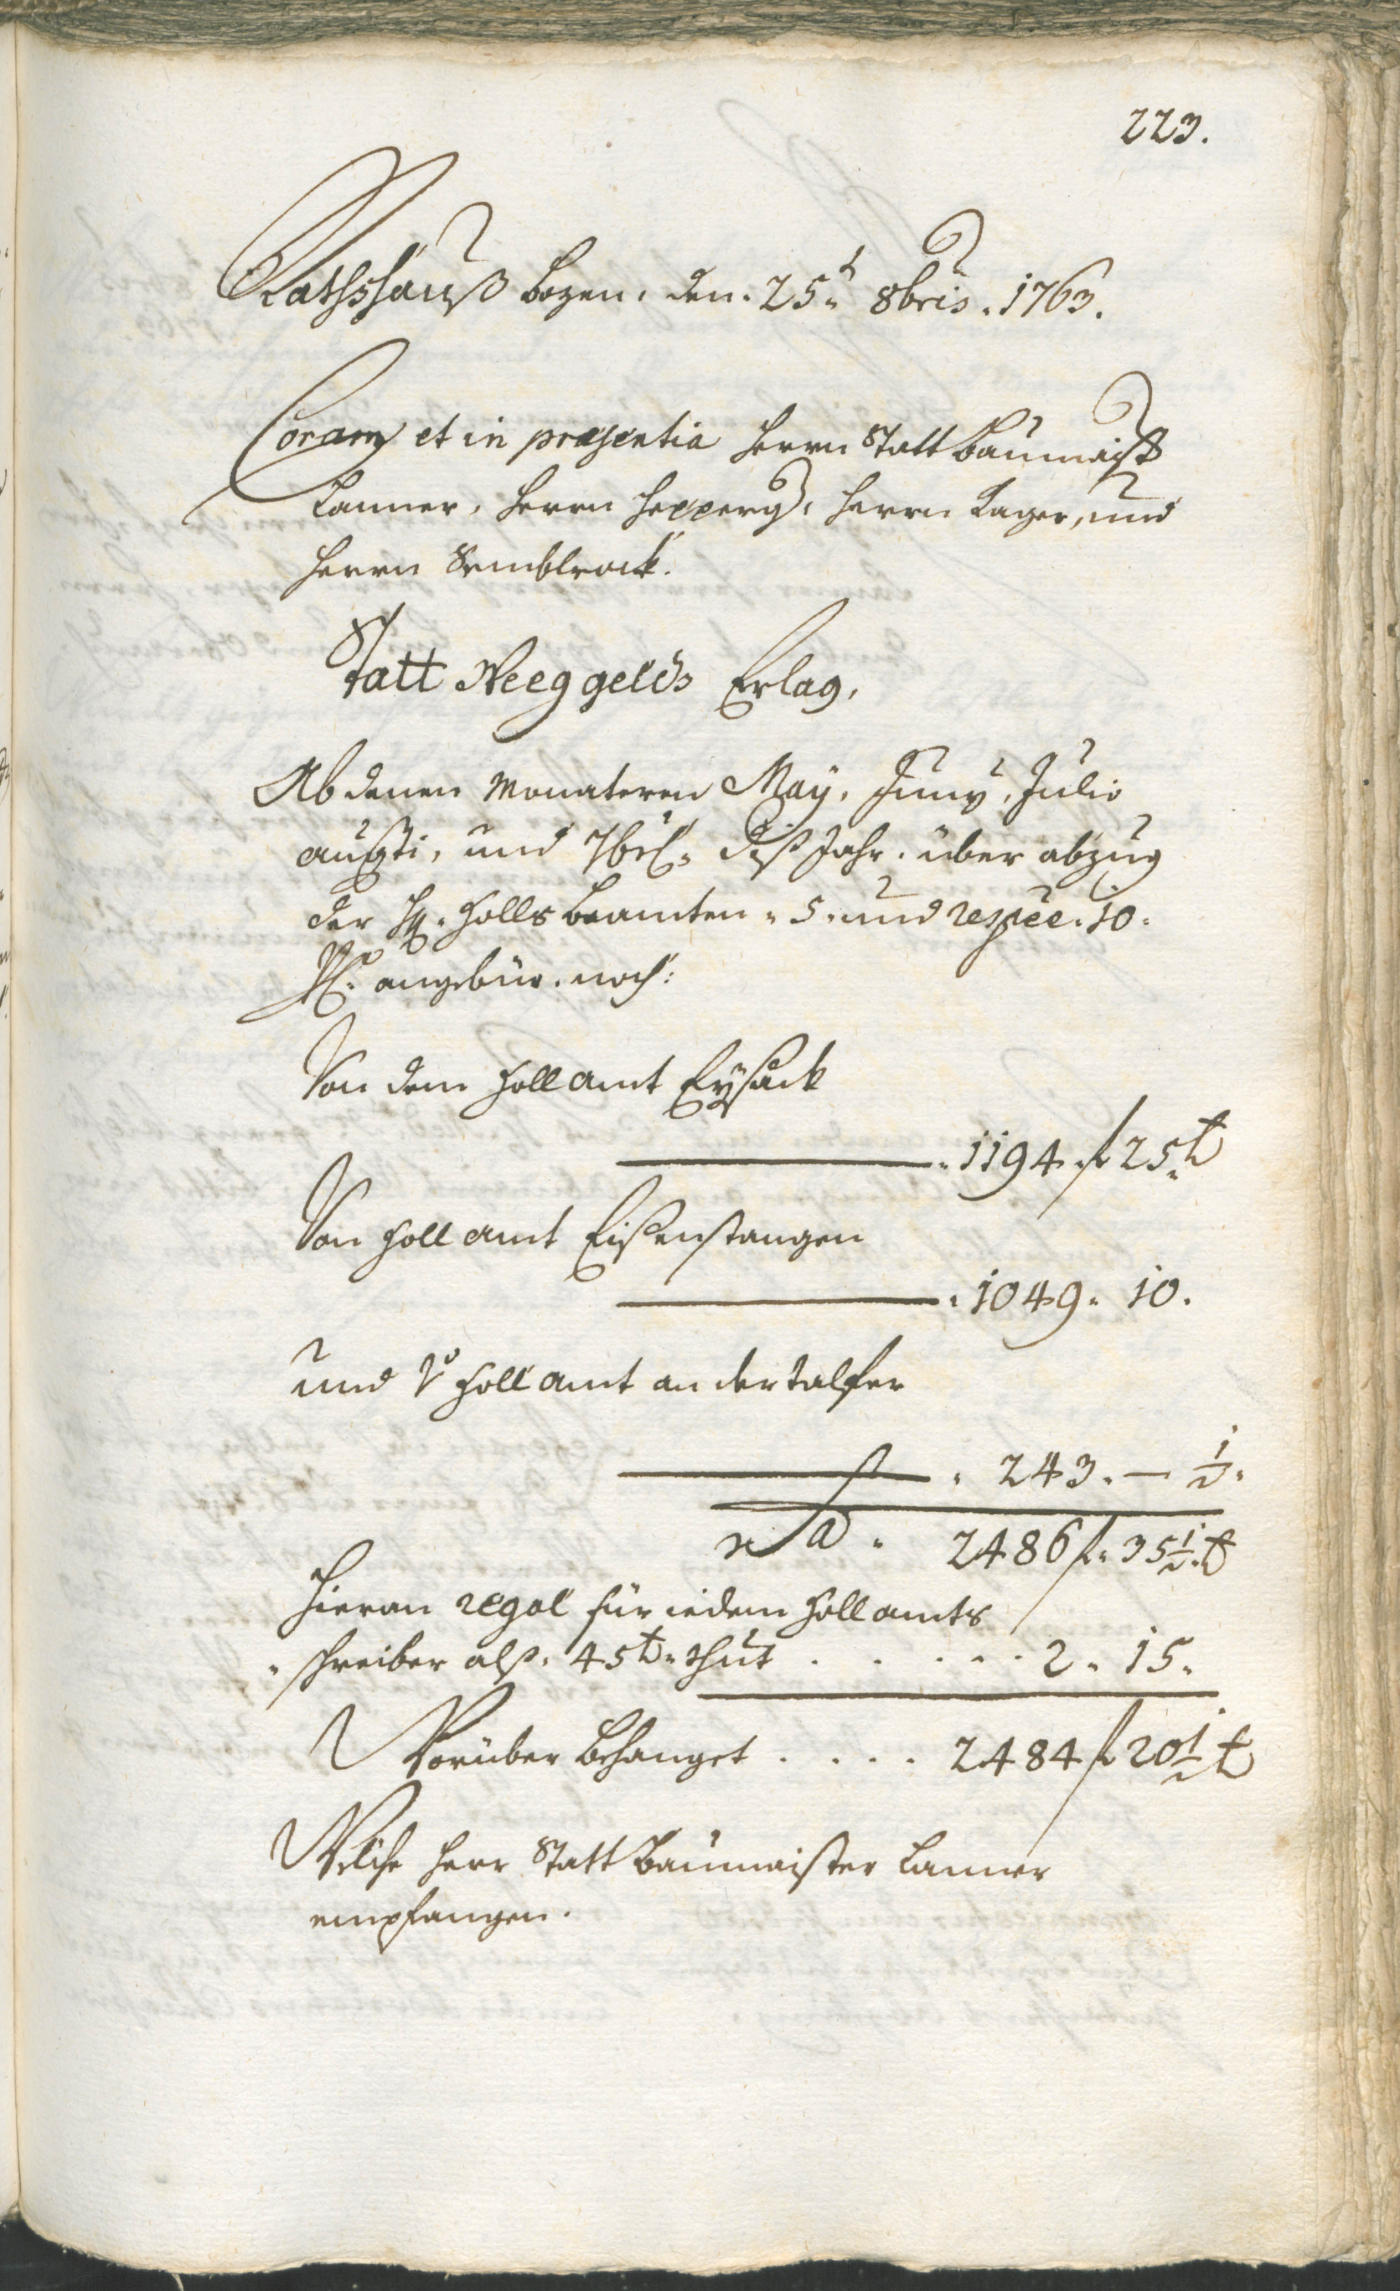 223.
Rathshauß Bozen, den. 25t. 8bris. 1763.
Coram et in præsentia Herrn Statt Baumaist
Lanner, Herrn Hepperg, Herrn Lager, und
Herrn Semblrock.
Statt Weeggelds Erlag,
Ab denen Monateren May, Juny, Julio
Augsti, und 7bris diß Jahr. über abzug
der H. Zolls Beamten. 5. und respée. 10.
angebür. noch:
Von dem Zoll amt Eysack
1194 f 25 x
Von Zoll amt Eisenstangen
1049. 10.
und v Zoll amt an der Talfer
243. — ½.
2486 f. 35 ½ x
Hieran regal für iedem Zoll amts
schreiber alß. 45 x. thut . . . . . 2. 15.
Worüber Behanget . . . . 2484 f 20 ½ x
Welche Herr Statt Baumaister Lanner
empfangen.